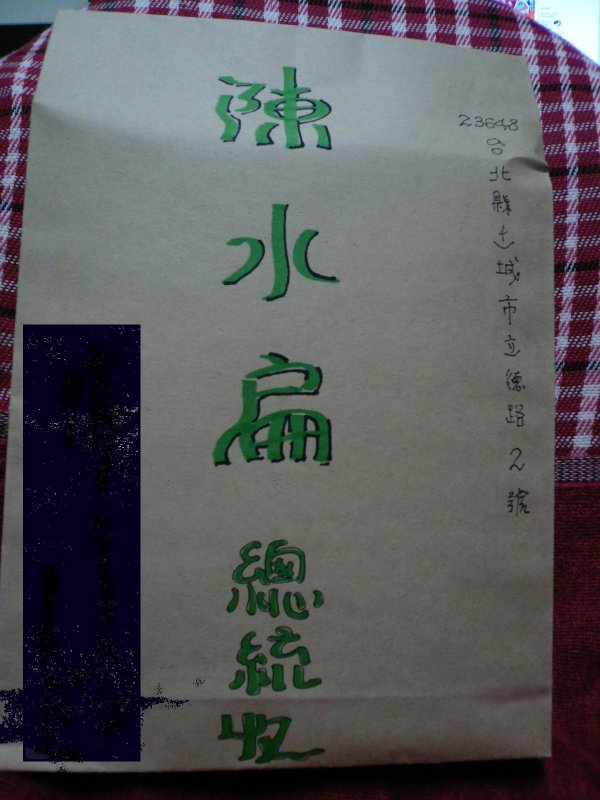 23648
台北縣土城市立德路2號
陳水扁總統收